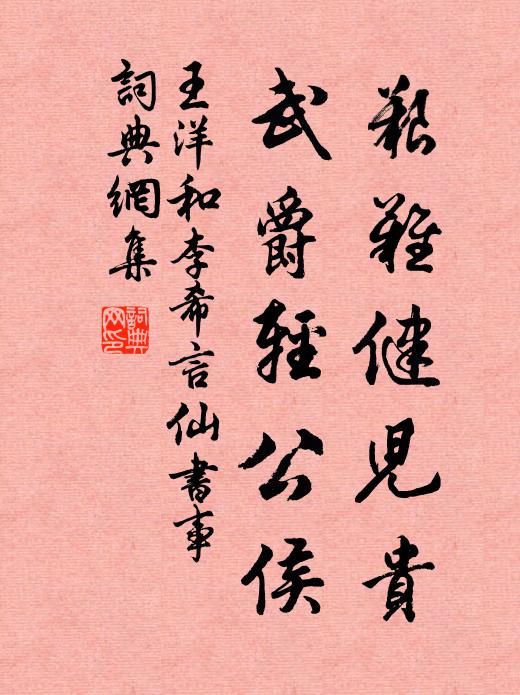 艱難健兒貴
武爵輕公侯
王洋和李希言仙書事
詞典網集
詞典網印